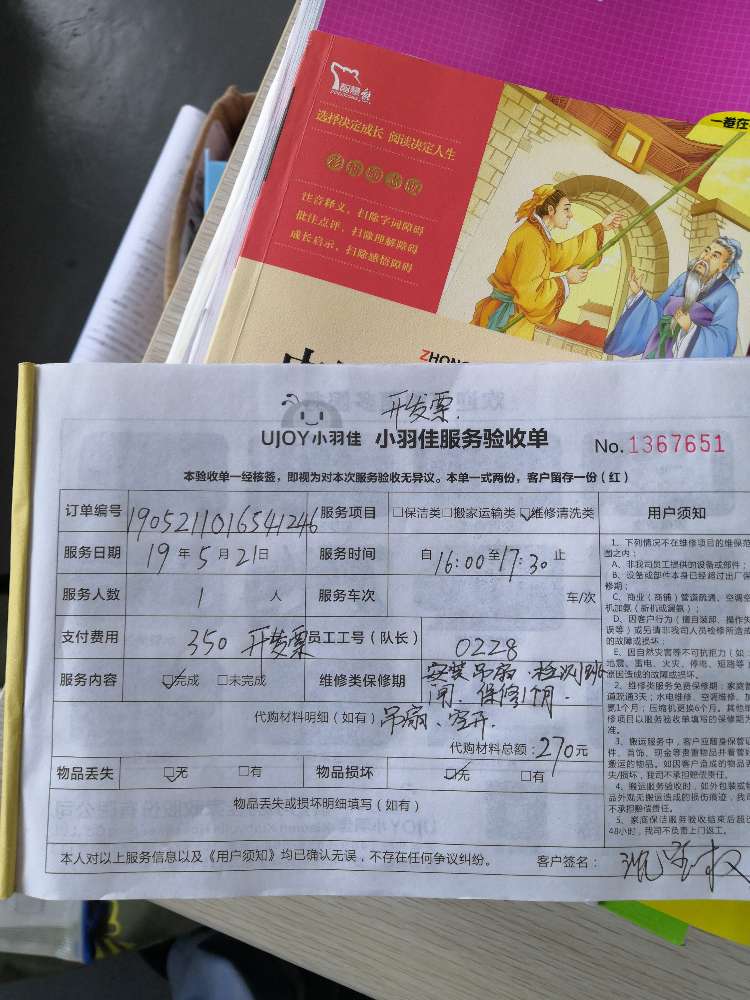 智慧熊
选择决定成长 阅读决定人生
彩图励志版
注音释义，扫除字词障碍
批注点评，扫除理解障碍
成长启示，扫除感悟障碍
一卷在
ZHONG
开发票
UJOY小羽佳 小羽佳服务验收单 No. 1367651
本验收单一经核签，即视为对本次服务验收无异议。本单一式两份，客户留存一份（红）
订单编号 1905211016541246 服务项目 □保洁类□搬家运输类☑维修清洗类 用户须知
服务日期 19年5月21日 服务时间 自16:00至17:30止
服务人数 1 人 服务车次 车/次
支付费用 350 开发票 员工工号（队长） 0228
服务内容 ☑完成 □未完成 维修类保修期 安装吊扇.检测跳
闸.保修1个月.
代购材料明细（如有）吊扇、空开
代购材料总额：270元
物品丢失 ☑无 □有 物品损坏 ☑无 □有
物品丢失或损坏明细填写（如有）
本人对以上服务信息以及《用户须知》均已确认无误，不存在任何争议纠纷。 客户签名：
1、下列情况不在维修项目的维保范
围之内：
A、非我司员工提供的设备或部件；
B、设备或部件本身已经超过出厂保
修期；
C、商业（商铺）管道疏通、空调空
机加氨（新机或漏氨）；
D、因客户行为（擅自装卸、操作失
误等）或另请非我司人员检修所造成
的故障或损坏；
E、因自然灾害等不可抗拒力（如：
地震、雷电、火灾、停电、短路等）
原因造成的故障或损坏。
2、维修类服务免费保修期：家庭管
道疏通3天；水电维修、空调维修、加
氨1个月；压缩机更换6个月。其他维
修项目以服务验收单填写的保修期为
准。
3、搬运服务中，客户应随身保管证
件、首饰、现金等贵重物品并看管好
搬运的物品。如因客户造成的物品丢
失/损坏，我司不承担赔偿责任。
4、搬运服务验收时，如外包装或物
品外观无搬运造成的损伤痕迹，我司
不承担赔偿责任。
5、家庭保洁服务验收结束后超过
48小时，我司不负责上门返工。